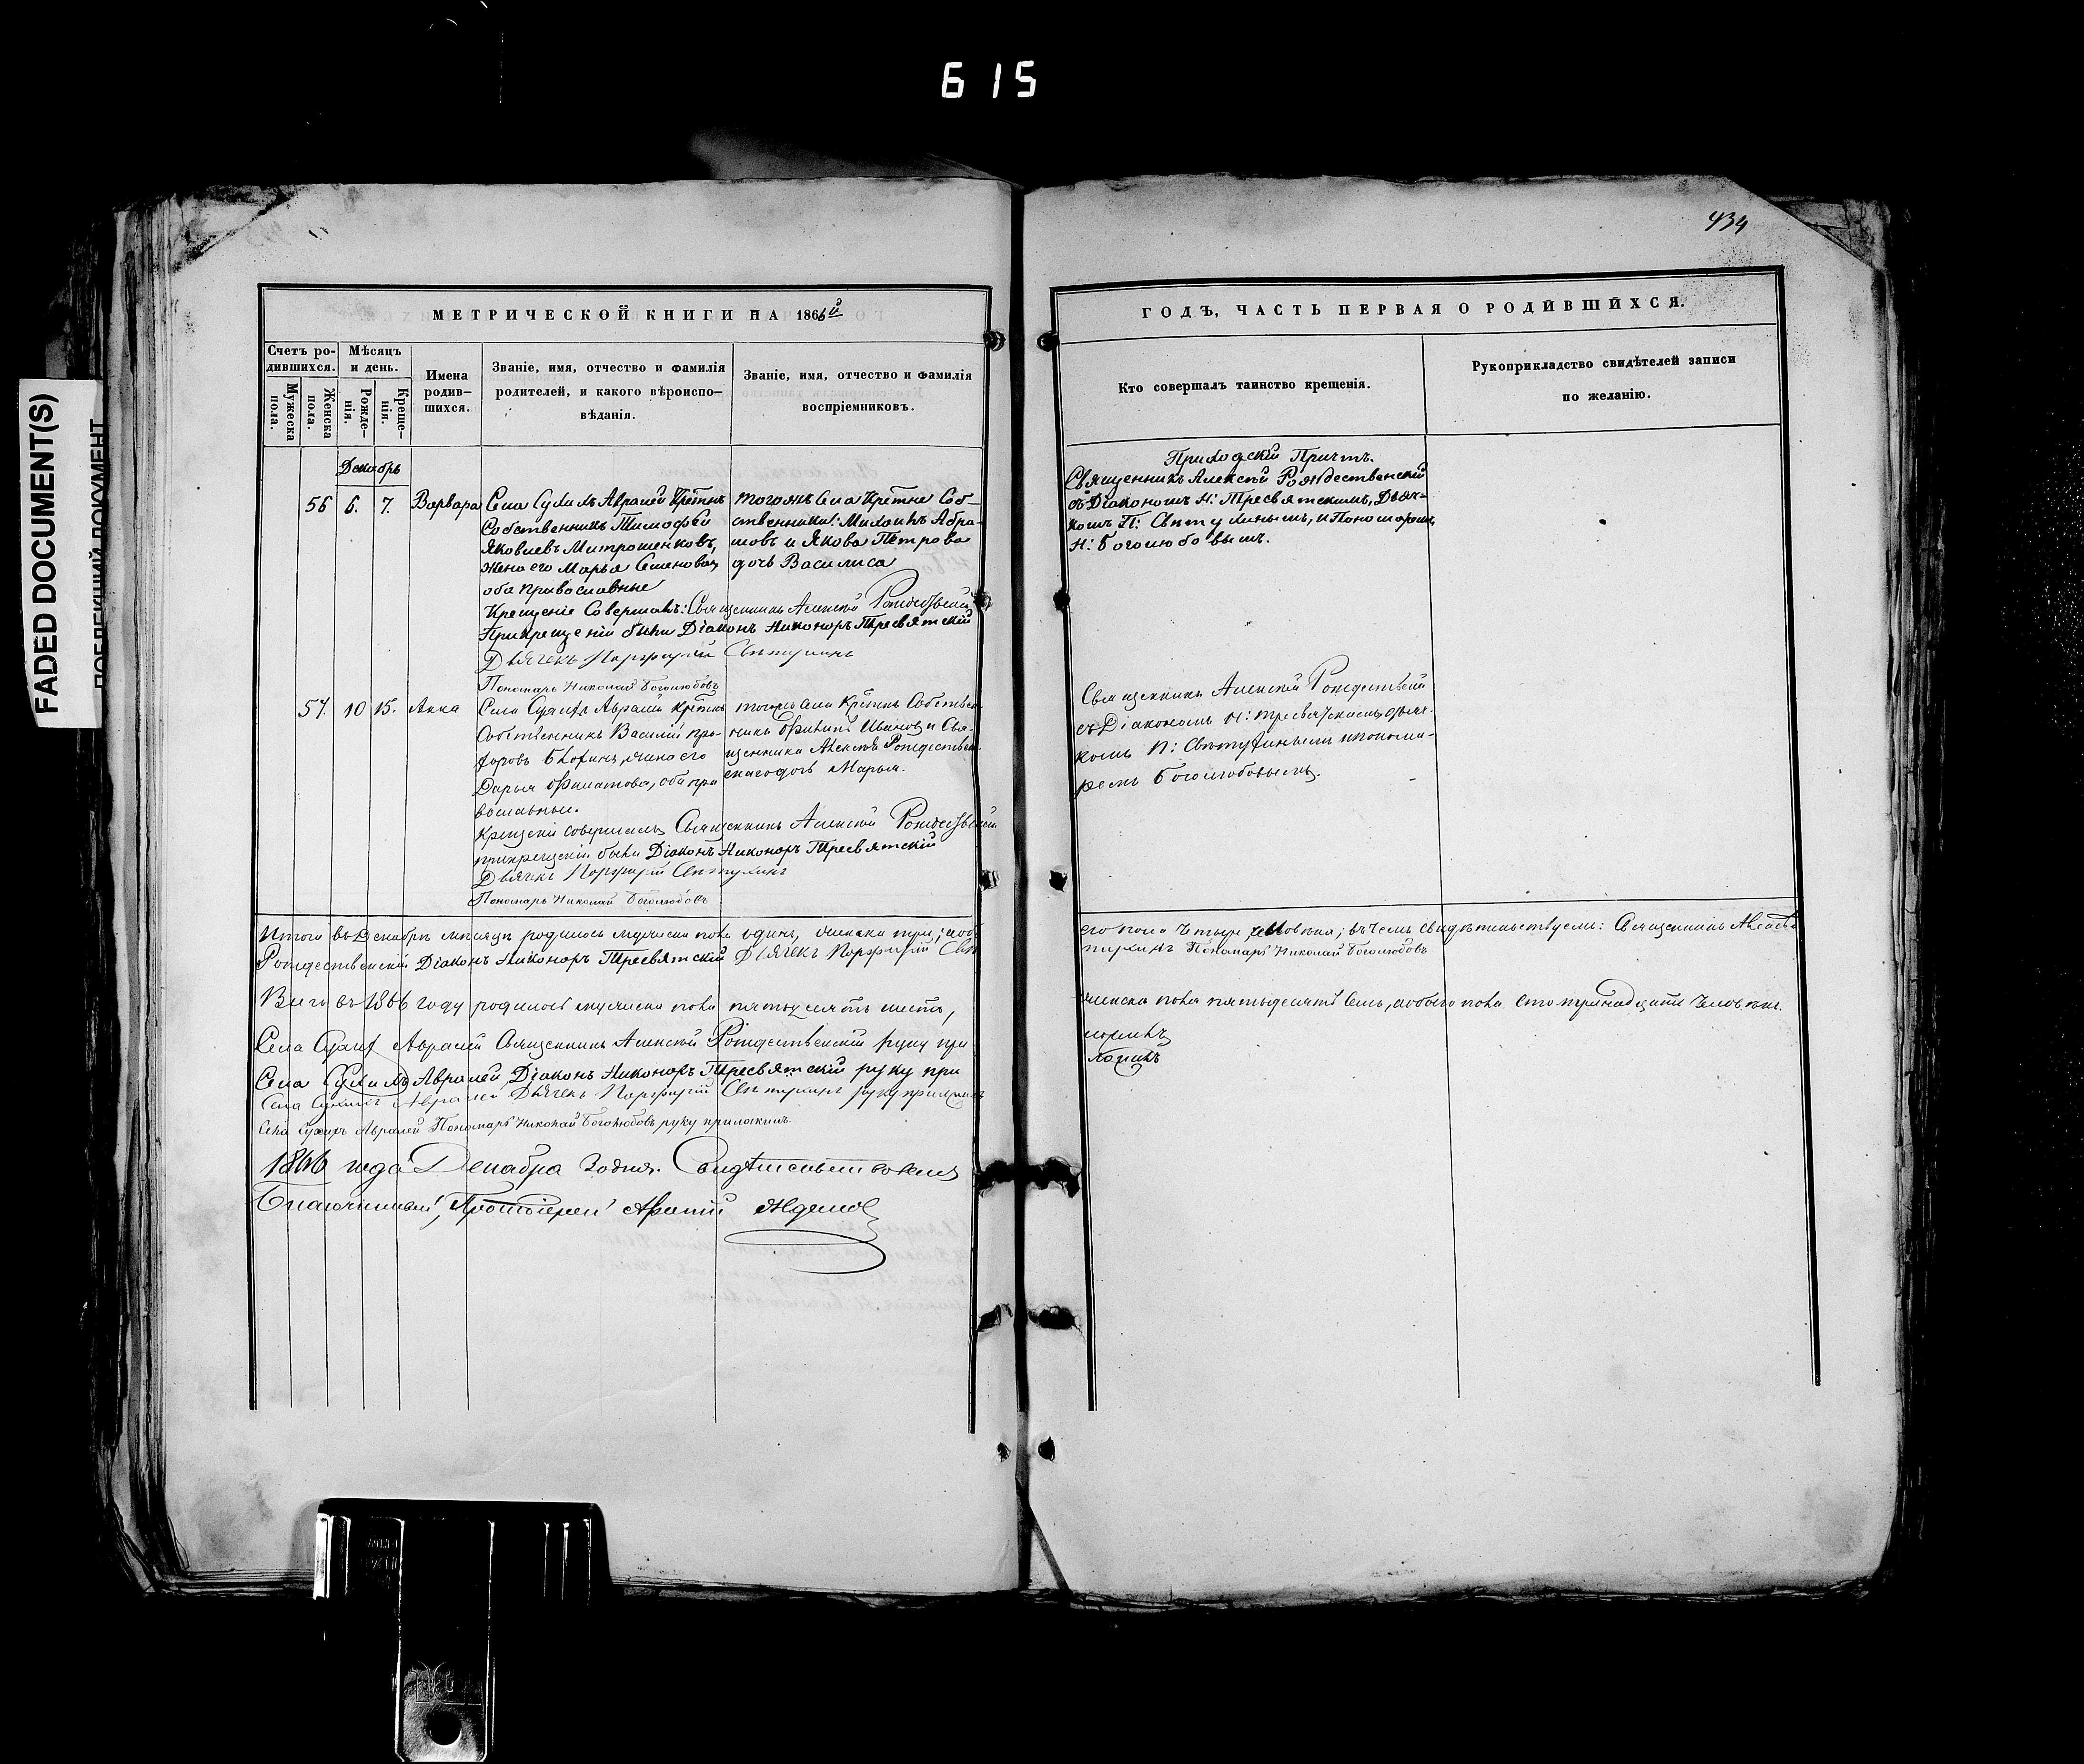 615
FADED DOCUMENT(S)
434
МЕТРИЧЕСКОЙ КНИГИ НА 1866й
ГОДЪ, ЧАСТЬ ПЕРВАЯ О РОДИВШИХСЯ.
Счетъ ро-
дившихся.
Мужеска
пола.
Женска
пола.
Мѣсяцъ
и день.
Рожде-
нія.
Креще-
нія.
Имена
родив-
шихся.
Званіе, имя, отчество и фамилія
родителей, и какого вѣроиспо-
вѣданія.
Званіе, имя, отчество и фамилія
воспріемниковъ.
Кто совершалъ таинство крещенія.
Рукоприкладство свидѣтелей записи
по желанію.
Декабрь
56 6. 7. Варвара
Села Авралей Крестнъ
Собственникъ Тимофей
Яковлевъ Митрошенковъ,
жена его Марья Семенова,
оба православные
Крещеніе Совершалъ: Священникъ Алексѣй Рождественскій
При крещеніи были Діаконъ Никоноръ Тресвятскій
Дьячекъ Порфирій
Пономарь Николай Боголюбовъ
тогожъ Села Крестне Соб-
ственники: Абра-
мовъ и Якова Петрова
дочь Василиса
Приходскій Причтъ.
Священникъ Алексѣй Рождественскій
съ Діакономъ Н: Тресвятскимъ, Дьяч-
комъ П: и Пономаремъ
Н: Боголюбовымъ.
57. 10 15. Анна
Села Авралей Крестнъ
Собственникъ Василій
жена его
Дарья Филатова, оба пра
вославные.
Крещеніе совершалъ Священникъ Алексѣй Рождественскій
при крещеніи были Діаконъ Никоноръ Тресвятскій
Дьячекъ Порфирій
Пономарь Николай Боголюбовъ
тогожъ села Крестнъ Собствен-
никъ Филипъ Ивановъ и Свя-
щенника Алексѣя Рождествен-
скаго дочь Марья.
Священникъ Алексѣй Рождественскій
съ Діакономъ Н: Тресвятскимъ, дьяч-
комъ П: и понома-
ремъ Боголюбовымъ.
Итого въ Декабрѣ мѣсяцѣ родилось мужеска пола одинъ, женска три, обо-
его пола четыре человѣка; въ чемъ свидѣтельствуемъ: Священникъ Алексѣй
Рождественскій Діаконъ Никоноръ Тресвятскій Дьячекъ Порфирій
Пономарь Николай Боголюбовъ
Всего въ 1866 году родилось мужеска пола пятьдесятъ шесть,
женска пола пятьдесятъ семь, а обоего пола сто тринадцать человѣкъ.
Села Авралей Священникъ Алексѣй Рождественскій руку при
ложилъ
Села Авралей Діаконъ Никоноръ Тресвятскій руку при
ложилъ
Села Авралей Дьячекъ Порфирій руку приложилъ
Села Авралей Пономарь Николай Боголюбовъ руку приложилъ.
1866 года Декабря дня. Свидѣтельствовалъ
Благочинный, Протоіерей